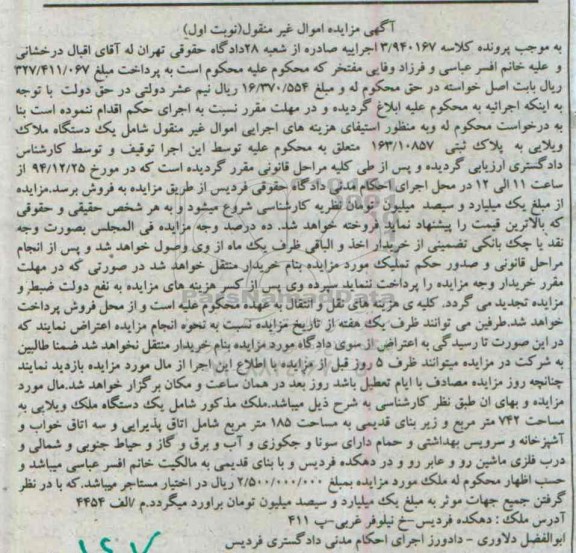 آگهی مزایده اموال غیر منقول(نوبت اول)
به موجب پرونده کلاسه ۳/۹۴۰۱۶۷ اجراییه صادره از شعبه ۲۸دادگاه حقوقی تهران له آقای اقبال درخشانی
و علیه خانم افسر عباسی و فرزاد وفایی مفتخر که محکوم علیه محکوم است به پرداخت مبلغ ۳۲۷/۴۱۱/۰۶۷
ریال بابت اصل خواسته در حق محکوم له و مبلغ ۱۶/۳۷۰/۵۵۴ ریال نیم عشر دولتی در حق دولت با توجه
به اینکه اجرائیه به محکوم علیه ابلاغ گردیده و در مهلت مقرر نسبت به اجرای حکم اقدام ننموده است بنا
به درخواست محکوم له وبه منظور استیفای هزینه های اجرایی اموال غیر منقول شامل یک دستگاه ملاک
ویلایی به پلاک ثبتی ۱۶۳/۱۰۸۵۷ متعلق به محکوم علیه توسط این اجرا توقیف و توسط کارشناس
دادگستری ارزیابی گردیده و پس از طی کلیه مراحل قانونی مقرر گردیده است که در مورخ ۹۴/۱۲/۲۵ از
ساعت ۱۱ الی ۱۲ در محل اجرای احکام مدنی دادگاه حقوقی فردیس از طریق مزایده به فروش برسد.مزایده
از مبلغ یک میلیارد و سیصد میلیون تومان نظریه کارشناسی شروع میشود و به هر شخص حقیقی و حقوقی
که بالاترین قیمت را پیشنهاد نماید فروخته خواهد شد. ده درصد وجه مزایده فی المجلس بصورت وجه
نقد یا چک بانکی تضمینی از خریدار اخذ و الباقی ظرف یک ماه از وی وصول خواهد شد و پس از انجام
مراحل قانونی و صدور حکم تملیک مورد مزایده بنام خریدار منتقل خواهد شد در صورتی که در مهلت
مقرر خریدار وجه مزایده را پرداخت ننماید سپرده وی پس از کسر هزینه های مزایده به نفع دولت ضبطر و
مزایده تجدید می گردد. کلیه ی هزینه های نقل و انتقال به عهده محکوم علیه است و از محل فروش پرداخت
خواهد شد.طرفین می توانند ظرف یک هفته از تاریخ مزایده نسبت به نحوه انجام مزایده اعتراض نمایند که
در این صورت تا رسیدگی به اعتراض از سوی دادگاه مورد مزایده بنام خریدار منتقل نخواهد شد ضمنا طالبین
به شرکت در مزایده میتوانند ظرف ۵ روز قبل از مزایده با اطلاع این اجرا از مال مورد مزایده بازدید نمایند
چنانچه روز مزایده مصادف با ایام تعطیل باشد روز بعد در همان ساعت و مکان برگزار خواهد شد.مال مورد
مزایده و بهای ان طبق نظر کارشناسی به شرح ذیل میباشد.ملک مذکور شامل یک دستگاه ملک ویلایی به
مساحت ۷۴۲ متر مربع و زیر بنای قدیمی به مساحت ۱۸۵ متر مربع شامل اتاق پذیرایی و سه اتاق خواب و
آشپزخانه و سرویس بهداشتی و حمام دارای سونا و جکوزی و آب و برق و گاز و حیاط جنوبی و شمالی و
درب فلزی ماشین رو و عابر رو و در دهکده فردیس و با بنای قدیمی به مالکیت خانم افسر عباسی میباشد و
حسب اظهار محکوم له ملک مورد مزایده بمبلغ ۲/۵۰۰/۰۰۰/۰۰۰ ریال در اختیار مستاجر میباشد.که با در نظر
گرفتن جمیع جهات موثر به مبلغ یک میلیارد و سیصد میلیون تومان براورد میگردد.م /الف ۴۴۵۴
آدرس ملک : دهکده فردیس-خ نیلوفر غربی-پ ۴۱۱
ابوالفضل دلاوری - دادورز اجرای احکام مدنی دادگستری فردیس